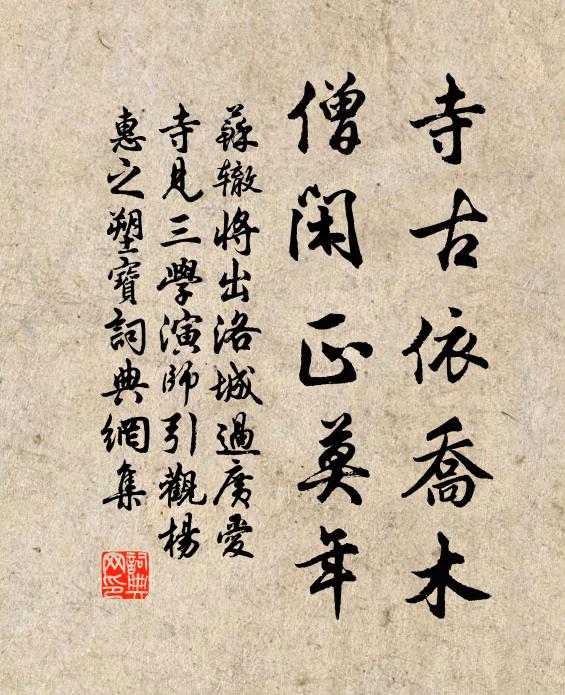 寺古依喬木
僧閑正莫年
蘇辙將出洛城過廣愛
寺見三學演師引觀楊
惠之塑寶詞典網集
詞典
网印